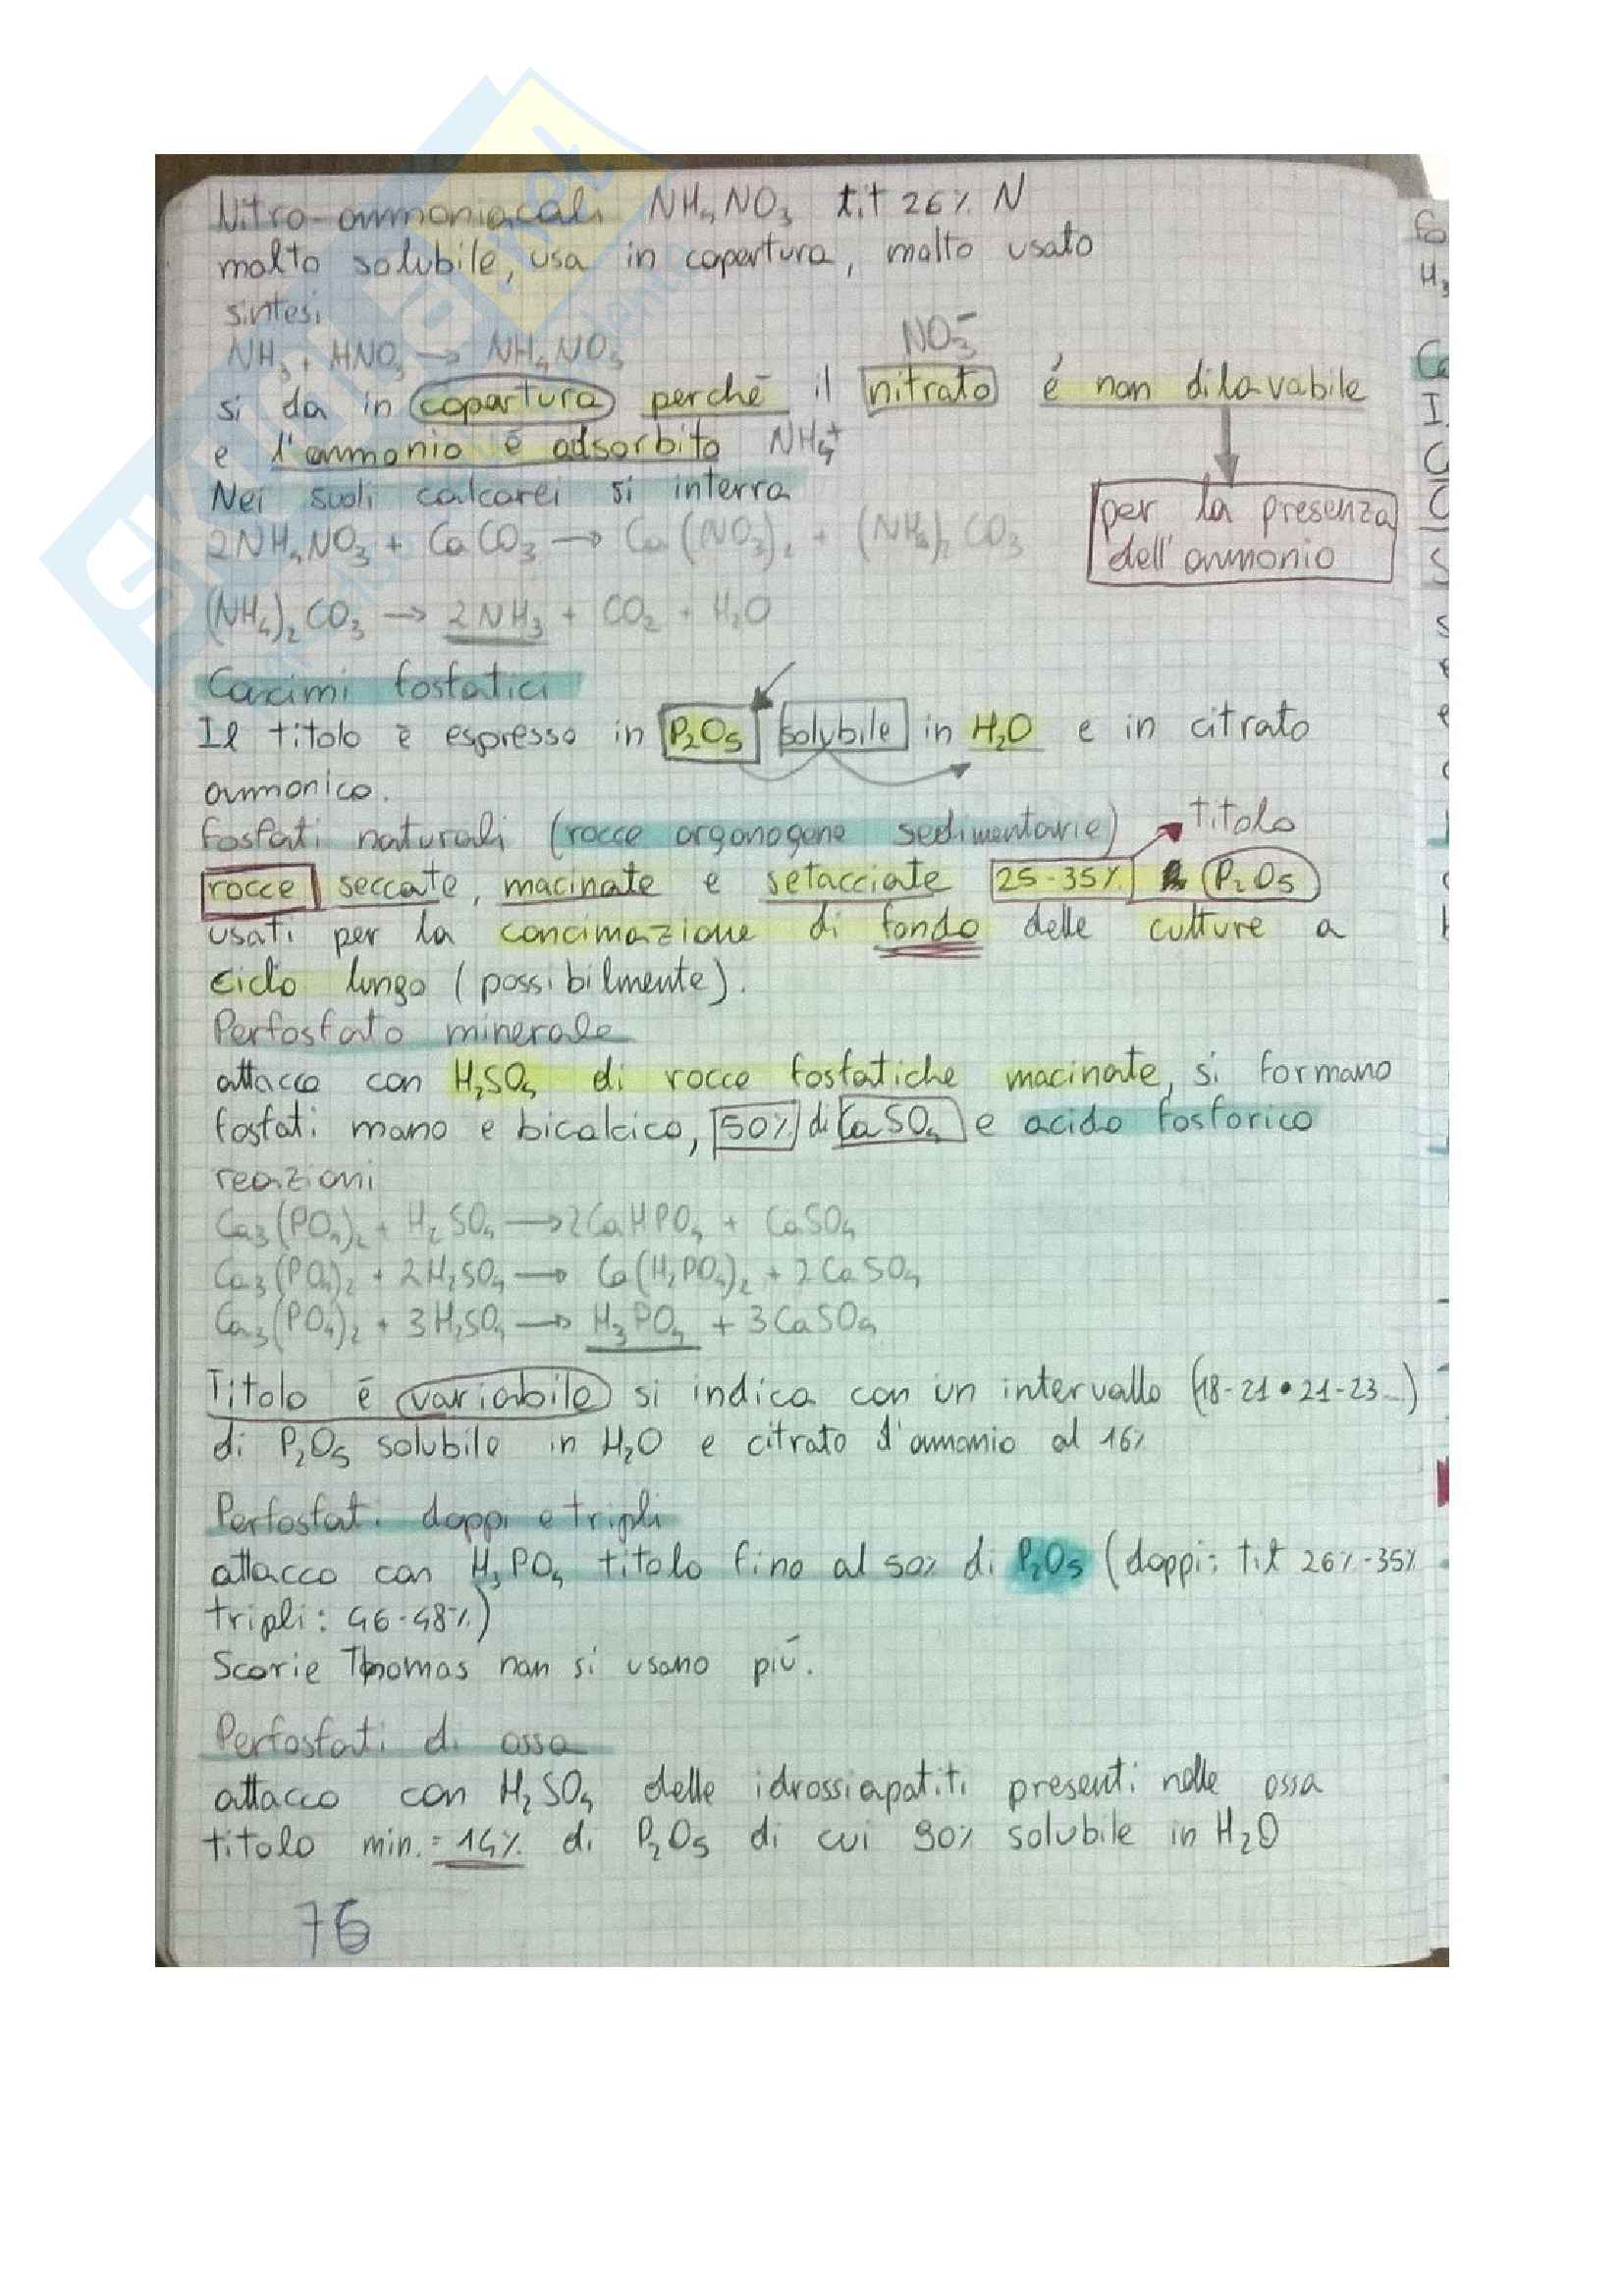 Nitro-ammoniacali NH₄NO₃ tit 26% N
molto solubile, usa in copertura, molto usato
sintesi
NH₃ + HNO₃ → NH₄NO₃
NO₃⁻
si da in copertura perché il nitrato é non dilavabile
e l'ammonio é adsorbito NH₄⁺
per la presenza
dell'ammonio
Nei suoli calcarei si interra
2NH₄NO₃ + CaCO₃ → Ca(NO₃)₂ + (NH₄)₂CO₃
(NH₄)₂CO₃ → 2NH₃ + CO₂ + H₂O
Concimi fosfatici
Il titolo è espresso in P₂O₅ solubile in H₂O e in citrato
ammonico.
fosfati naturali (rocce organogene sedimentarie) titolo
rocce seccate, macinate e setacciate 25-35% P₂O₅
usati per la concimazione di fondo delle culture a
ciclo lungo (possibilmente).
Perfosfato minerale
attacco con H₂SO₄ di rocce fosfatiche macinate, si formano
fosfati mono e bicalcico, 50% di CaSO₄ e acido fosforico
reazioni
Ca₃(PO₄)₂ + H₂SO₄ → 2CaHPO₄ + CaSO₄
Ca₃(PO₄)₂ + 2H₂SO₄ → Ca(H₂PO₄)₂ + 2CaSO₄
Ca₃(PO₄)₂ + 3H₂SO₄ → H₃PO₄ + 3CaSO₄
Titolo é variabile si indica con un intervallo (18-21 • 21-23...)
di P₂O₅ solubile in H₂O e citrato d'ammonio al 16%
Perfosfati doppi e tripli
attacco con H₃PO₄ titolo fino al 50% di P₂O₅ (doppi: tit 26%-35%
tripli: 46-48%)
Scorie Thomas non si usano più.
Perfosfati di ossa
attacco con H₂SO₄ delle idrossiapatiti presenti nelle ossa
titolo min. = 14% di P₂O₅ di cui 90% solubile in H₂O
76